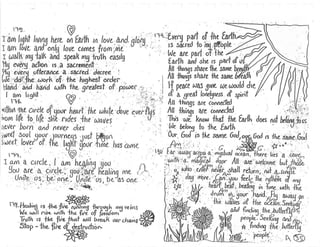 175.
I am light living here on Earth in love and glory
I am love and only love comes from me
I walk my talk and speak my truth easily
My every action is a sacrament
My every utterance a sacred decree
We do the work of the highest order
Hand and hand with the greatest of power
I am light
176.
Within the circle of your heart the white dove ever flys
from life to life she rides the waves
never born and never dies
Sweet soul your journeys just begun
Sweet lover of the light your time has come
177.
I am a circle, I am healing you
You are a circle, you are healing me
Unite us, be one, Unite us, be as one
178.
Healing is the fire running through my veins
We will ruin with the fire of freedom
Truth is the fire that will break our chains
Stop the fire of destruction
179.
Every part of the Earth
is sacred to my people
We are part of the
Earth and she is part of us
All things share the same breath
All things share the same breath
If peace was gone we would die
of a great loneliness of spirit
All things are connected
All things are connected
This we know that the Earth does not belong to us
We belong to the Earth
Our God is the same God, our God is the same God
180.
Far away across a mystical ocean, there lies a cove
with a magical door. All are welcome but pride
is who enter never shall return, and a single
day more. Can you feel the rhythm of my
heart beat, beating in time with the
drum in your hand, fly away on
the waves of the ocean. Seeking
and finding the butterfly
people. Seeking and
a finding the
butterfly
people.
35